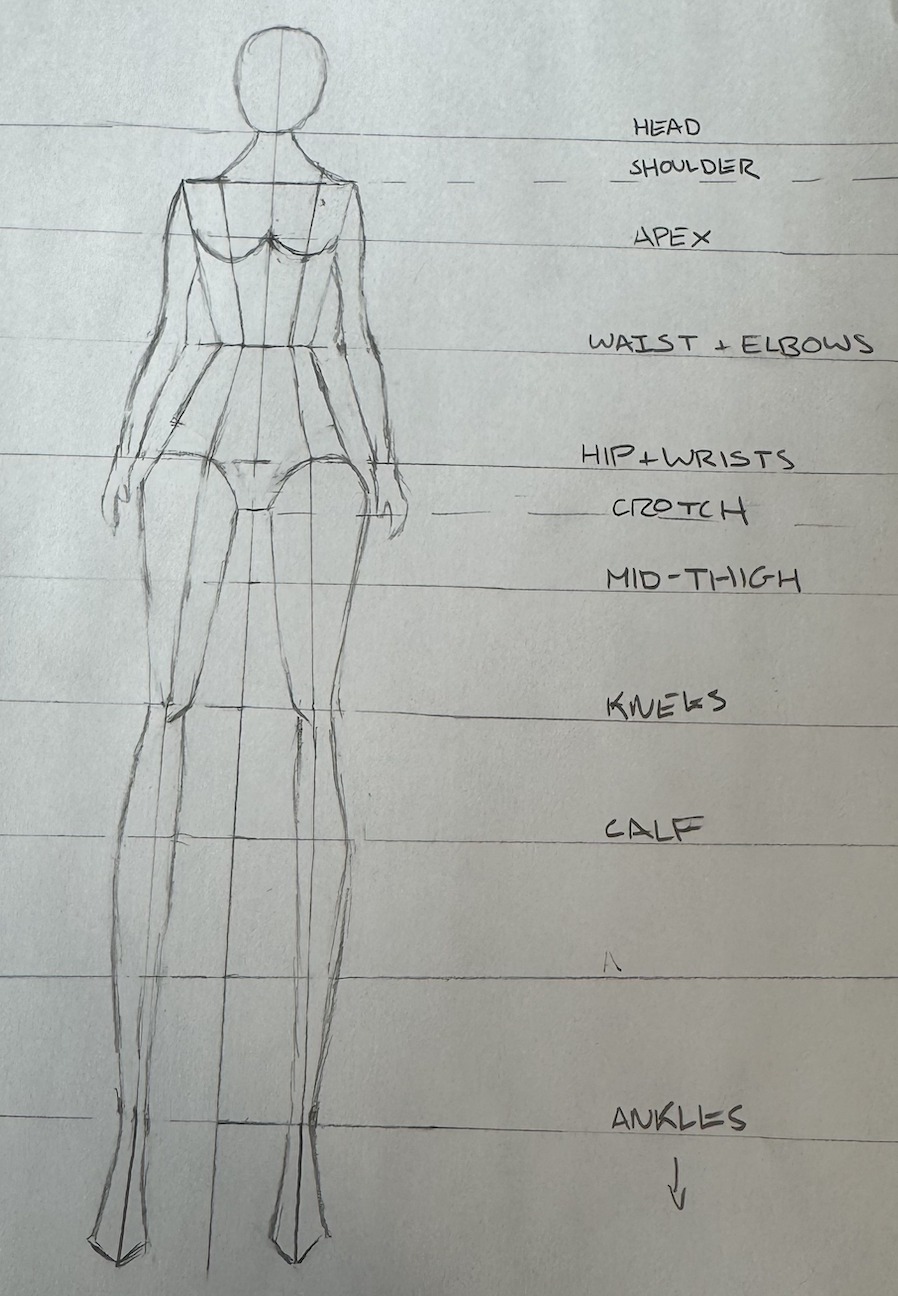 HEAD
SHOULDER
APEX
WAIST + ELBOWS
HIP + WRISTS
CROTCH
MID-THIGH
KNEES
CALF
A
ANKLES